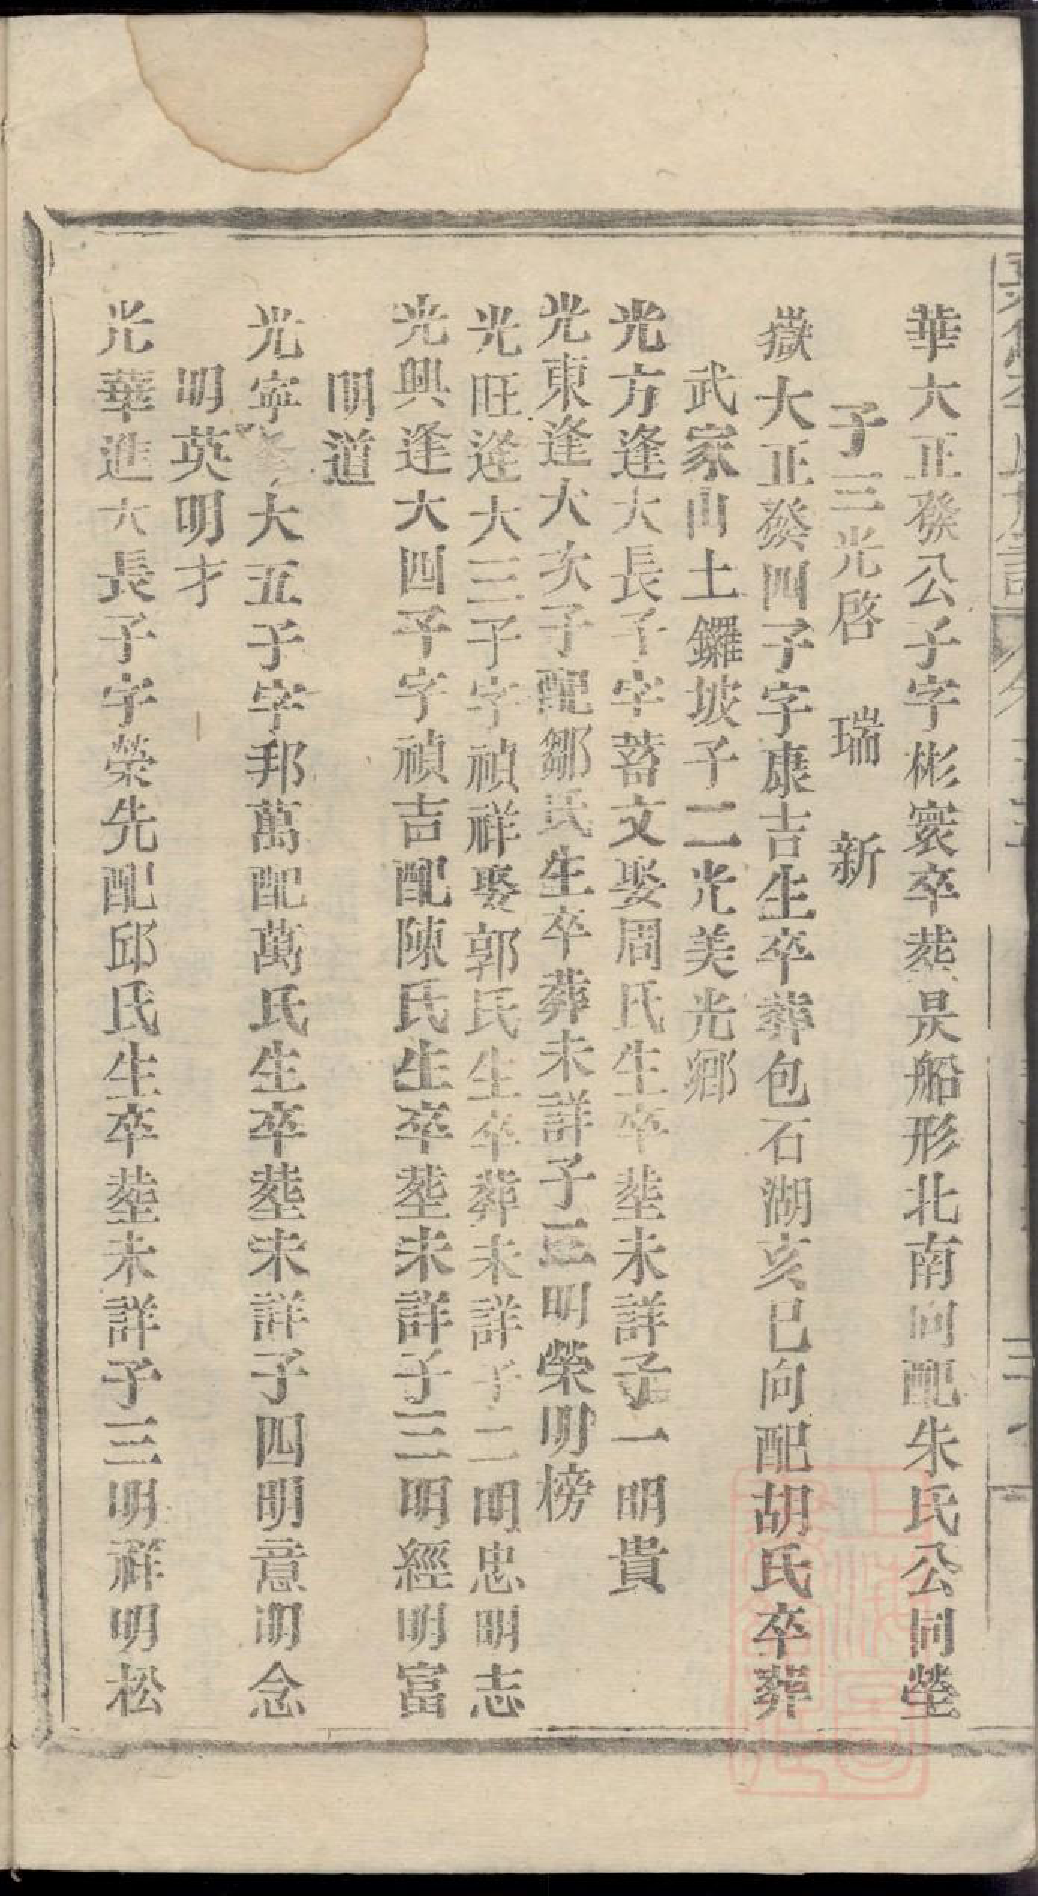 華大正發公子字彬寰卒塟是船形北南向配朱氏公同塋
子三光啓 瑞 新
嶽大正發四子字康吉生卒葬包石湖亥巳向配胡氏卒葬
武家山土鑼坡子二光美光鄉
光方逢大長子字蓄文娶周氏生卒塟未詳子一明貴
光東逢大次子配鄒氏生卒葬未詳子三明榮明榜
光旺逢大三子字禎祥娶郭氏生卒葬未詳子二明忠明志
光興逢大四子字禎吉配陳氏生卒塟未詳子三明經明富
明道
光寧大五子字邦萬配萬氏生卒塟未詳子四明意明念
明英明才
光華進大長子字榮先配邱氏生卒塟未詳子三明祥明松